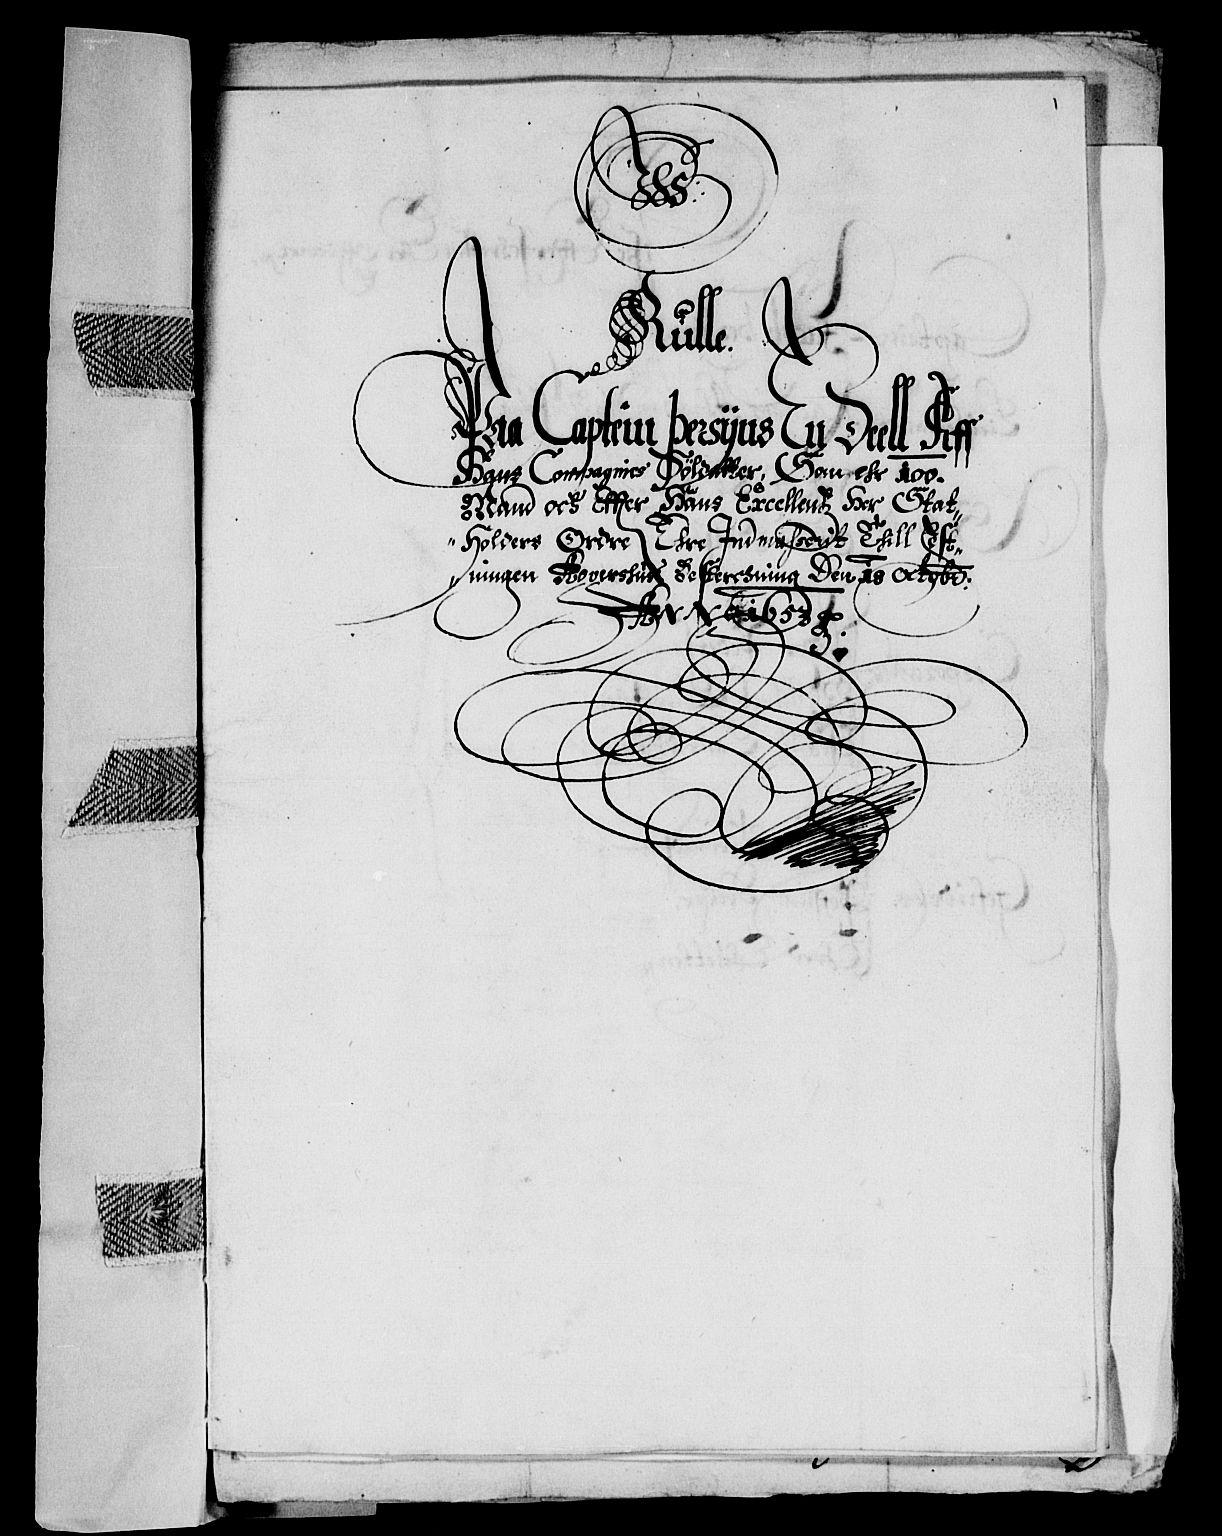 Rulle.
Paa Captein persyns En Deell Aff
Hans Compagnies Söldatter, Som ehr 100.
Mand och Effter Hans Excellentz Her Stat„
„Holders Ordre Ehre Indmunsterit Thill Fest„
„ningen Aggershuus besterchning Den 18 octobr:
ANNO 1653